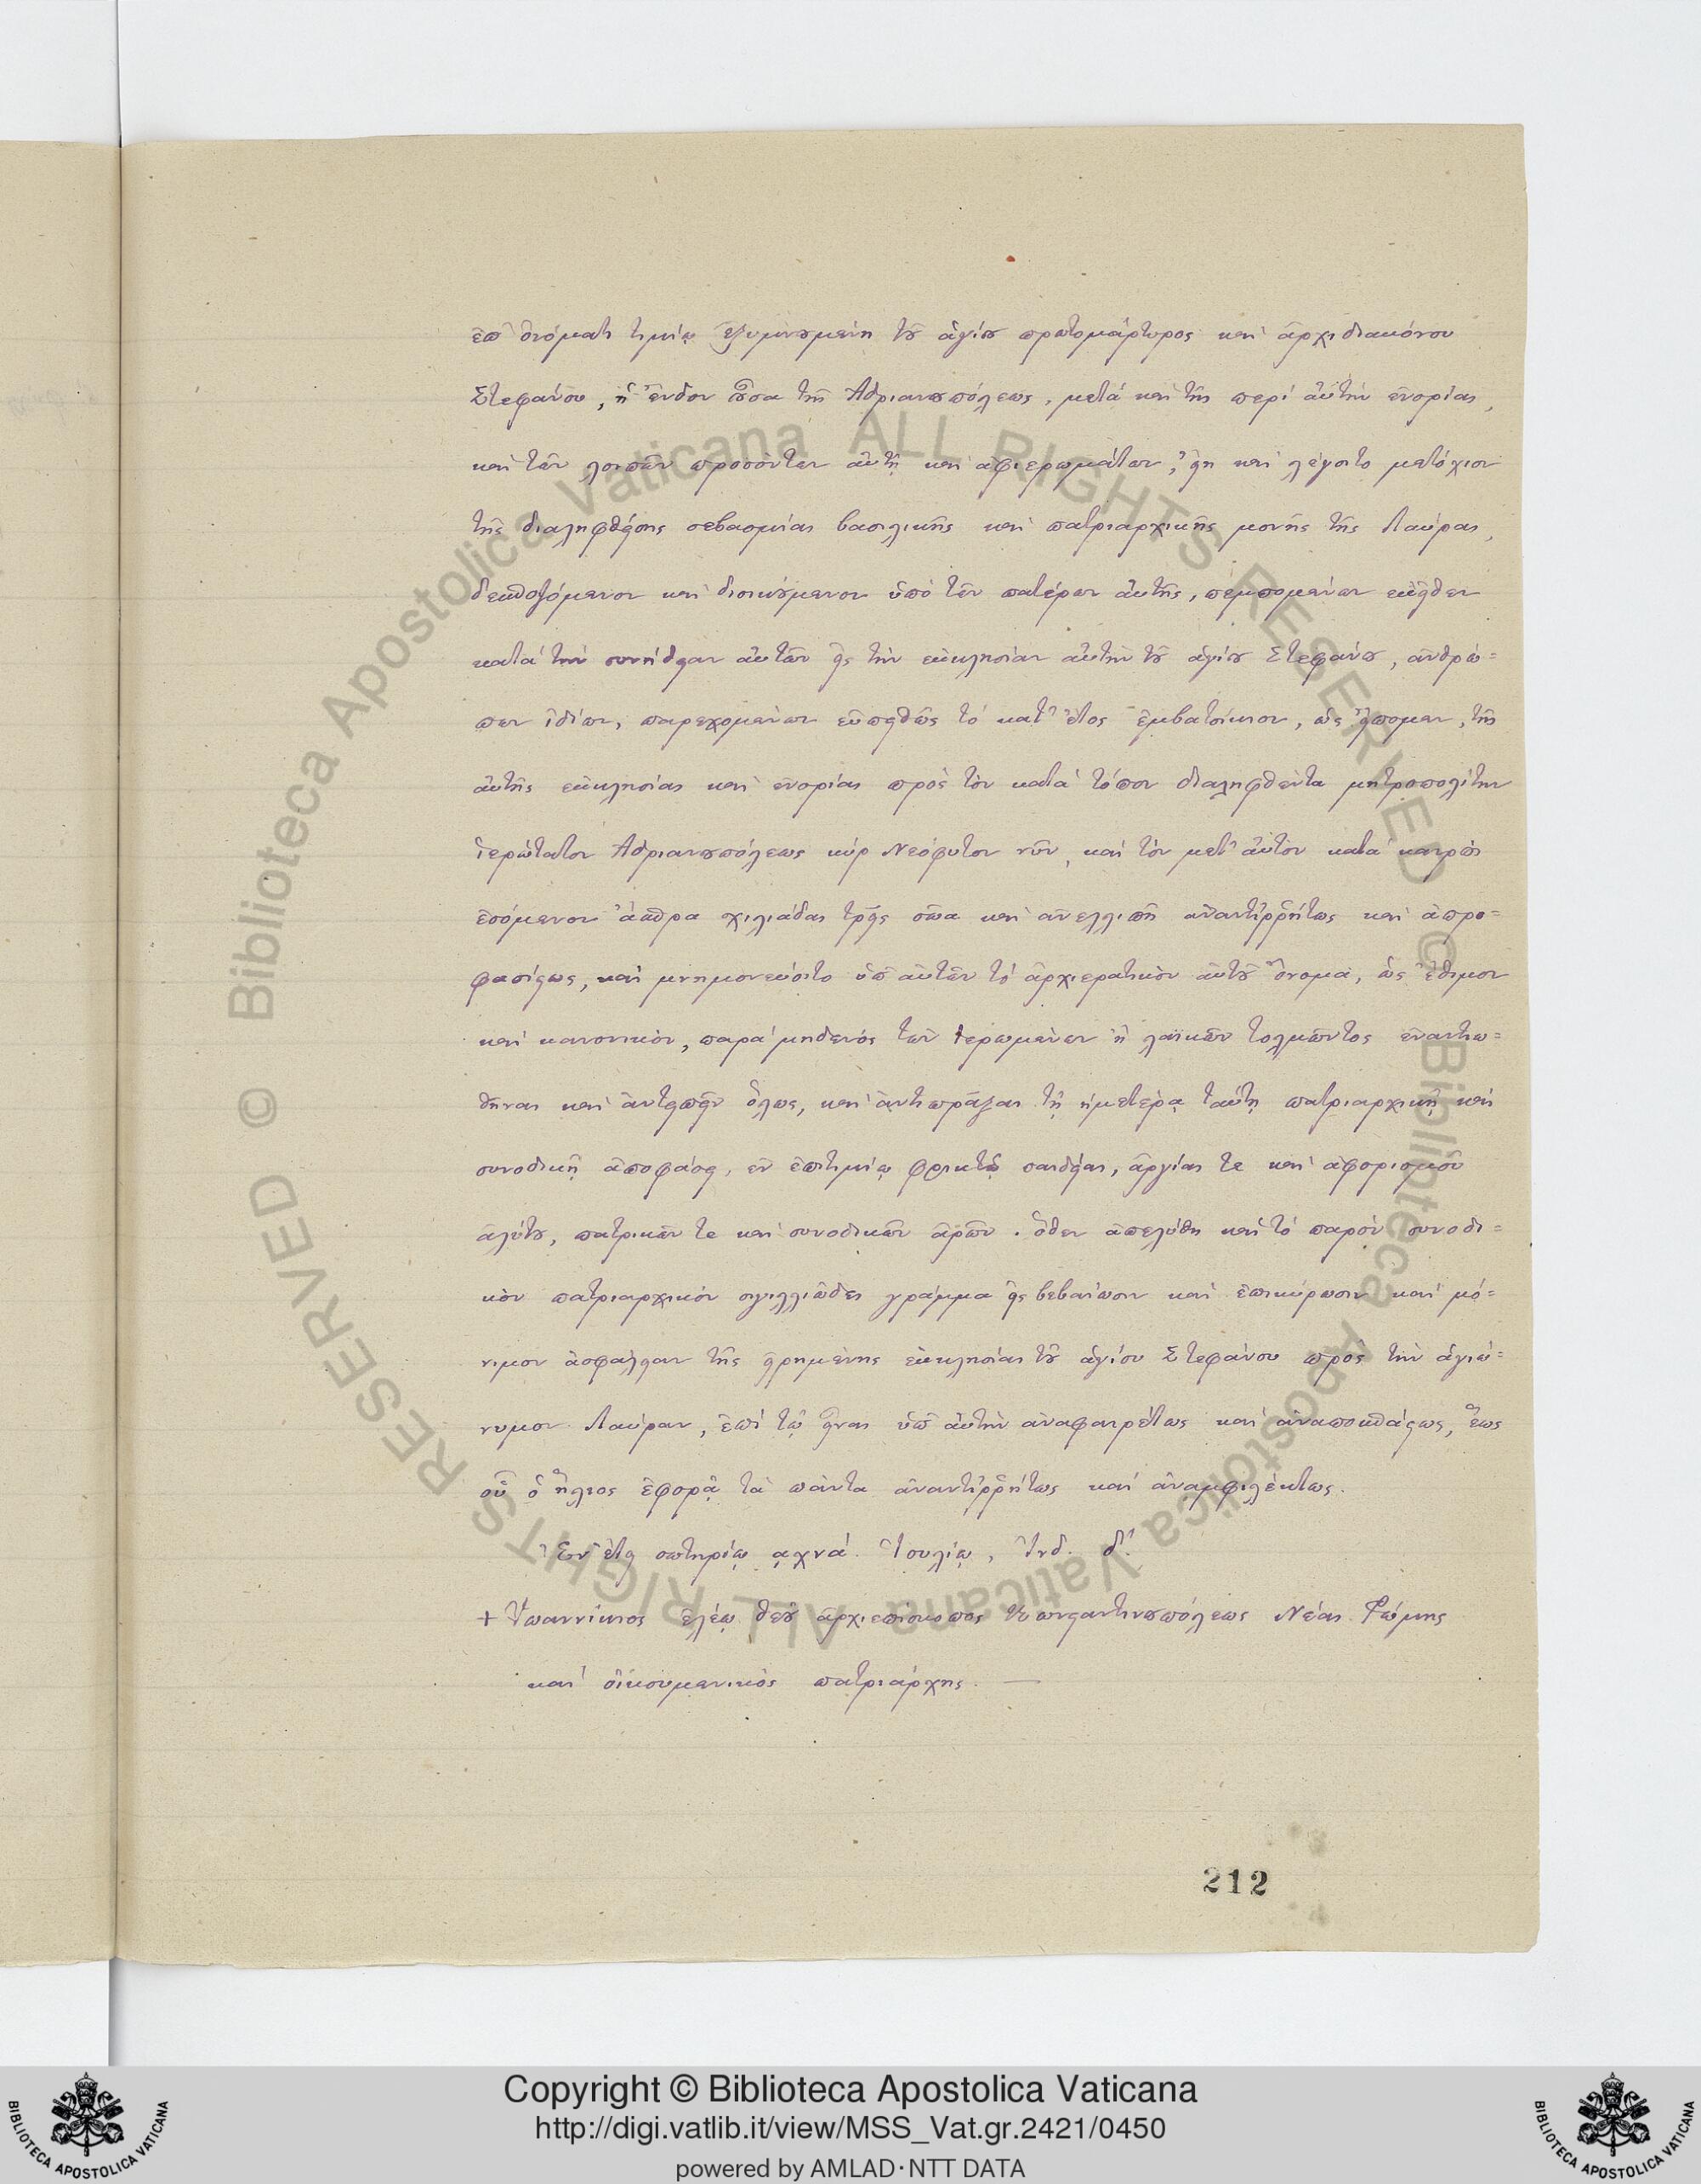 ἐπ' ὀνόματι τιμίῳ ἐξυμνουμένη τοῦ ἁγίου πρωτομάρτυρος καὶ ἀρχιδιακόνου
Στεφάνου, ἡ ἔνδον οὖσα τῆς Ἀδριανουπόλεως, μετὰ καὶ τῆς περὶ αὐτὴν ἐνορίας,
καὶ τῶν λοιπῶν προσόντων αὐτῇ καὶ ἀφιερωμάτων, εἴη καὶ λέγοιτο μετόχιον
τῆς διαληφθείσης σεβασμίας βασιλικῆς καὶ πατριαρχικῆς μονῆς τῆς Λαύρας,
δεσποζόμενον καὶ διοικούμενον ὑπὸ τῶν πατέρων αὐτῆς, πεμπομένων ἐκεῖθεν
κατὰ τὴν συνήθειαν αὐτῶν εἰς τὴν ἐκκλησίαν αὐτὴν τοῦ ἁγίου Στεφάνου, ἀνθρώ=
πων ἰδίων, παρεχομένων εὐπειθῶς τὸ κατ' ἔτος ἐμβατοίκιον, ὡς εἴπομεν, τῆς
αὐτῆς ἐκκλησίας καὶ ἐνορίας πρὸς τὸν κατὰ τόπον διαληφθέντα μητροπολίτην
ἱερώτατον Ἀδριανουπόλεως κὺρ Νεόφυτον νῦν, καὶ τὸν μετ' αὐτὸν κατὰ καιρὸν
ἐσόμενον ἄσπρα χιλιάδας τρεῖς σῶα καὶ ἀνελλιπῆ ἀναντιρρήτως καὶ ἀπρο=
φασίστως, καὶ μνημονεύοιτο ὑπ' αὐτῶν τὸ ἀρχιερατικὸν αὐτοῦ ὄνομα, ὡς ἔθιμον
καὶ κανονικὸν, παρὰ μηδενὸς τῶν ἱερωμένων ἢ λαϊκῶν τολμῶντος ἐναντιω=
θῆναι καὶ ἀντειπεῖν ὅλως, καὶ ἀντιπρᾶξαι τῇ ἡμετέρᾳ ταύτῃ πατριαρχικῇ καὶ
συνοδικῇ ἀποφάσει, ἐν ἐπιτιμίῳ φρικτῷ παιδείας, ἀργίας τε καὶ ἀφορισμοῦ
ἀλύτου, πατρικῶν τε καὶ συνοδικῶν ἀρῶν. ὅθεν ἀπελύθη καὶ τὸ παρὸν συνοδι=
κὸν πατριαρχικὸν σιγιλλιῶδες γράμμα εἰς βεβαίωσιν καὶ ἐπικύρωσιν καὶ μό=
νιμον ἀσφάλειαν τῆς εἰρημένης ἐκκλησίας τοῦ ἁγίου Στεφάνου πρὸς τὴν ἁγιώ=
νυμον Λαύραν, ἐπὶ τῷ εἶναι ὑπ' αὐτὴν ἀναφαιρέτως καὶ ἀναποσπάστως, ἕως
οὗ ὁ ἥλιος ἐφορᾷ τὰ πάντα ἀναντιρρήτως καὶ ἀναμφιλέκτως.
Ἐν ἔτει σωτηρίῳ αχνά. Ἰουλίῳ, Ἰνδ. δ'.
+ Ἰωαννίκιος ἐλέῳ θεοῦ ἀρχιεπίσκοπος Κωνσταντινουπόλεως Νέας Ῥώμης
καὶ οἰκουμενικὸς πατριάρχης. —
212
Copyright © Biblioteca Apostolica Vaticana
http://digi.vatlib.it/view/MSS_Vat.gr.2421/0450
powered by AMLAD·NTT DATA